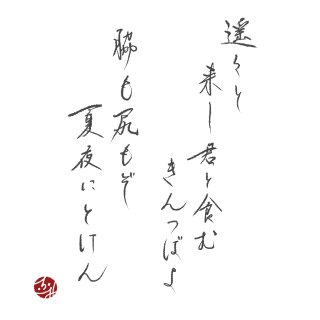 遥々と
来し君と食む
きんつばよ
脇も尻もぞ
夏夜にとけん